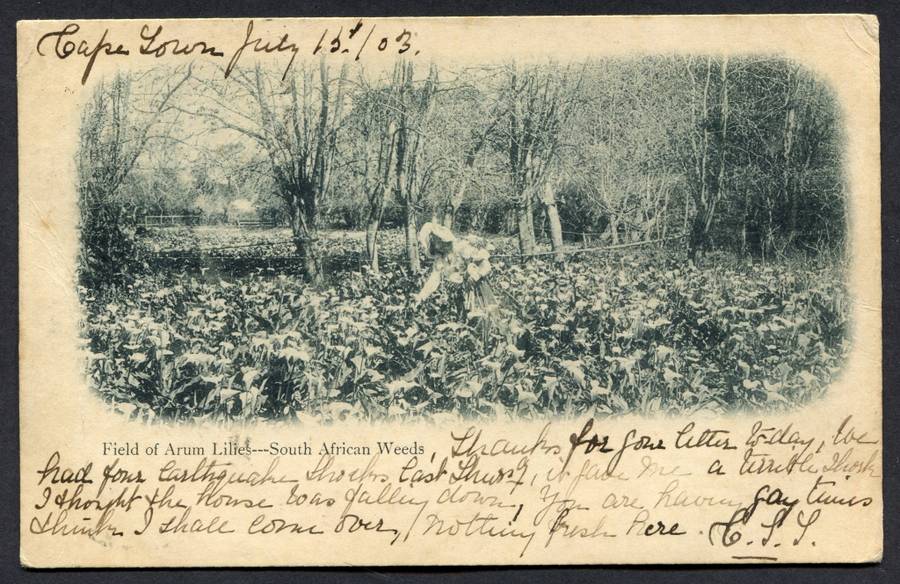 Cape Town July 15t/03.
Field of Arum Lilies---South African Weeds
Thanks for your letter to-day, We
had four Earthquake Shocks Last Thurs?, it gave me a terrible Shock
I thought the House was falling down, You are having gay times
think I shall come over, / nothing fresh here. C. S. S.